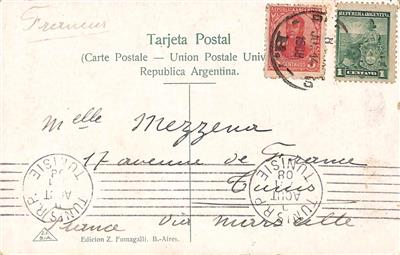 Francia
Tarjeta Postal
(Carte Postale — Union Postale Univ
Republica Argentina.
REPUBLICA ARGENTINA
5 CENTAVOS
1 CENTAVO 1
Melle Mezzena
17 avenue de France
Tunis
France via Marseille
TUNIS R.P.
AOUT
08
TUNISIE
TUNIS R.P.
AOUT
08
TUNISIE
Edicion Z. Fumagalli. B.-Aires.